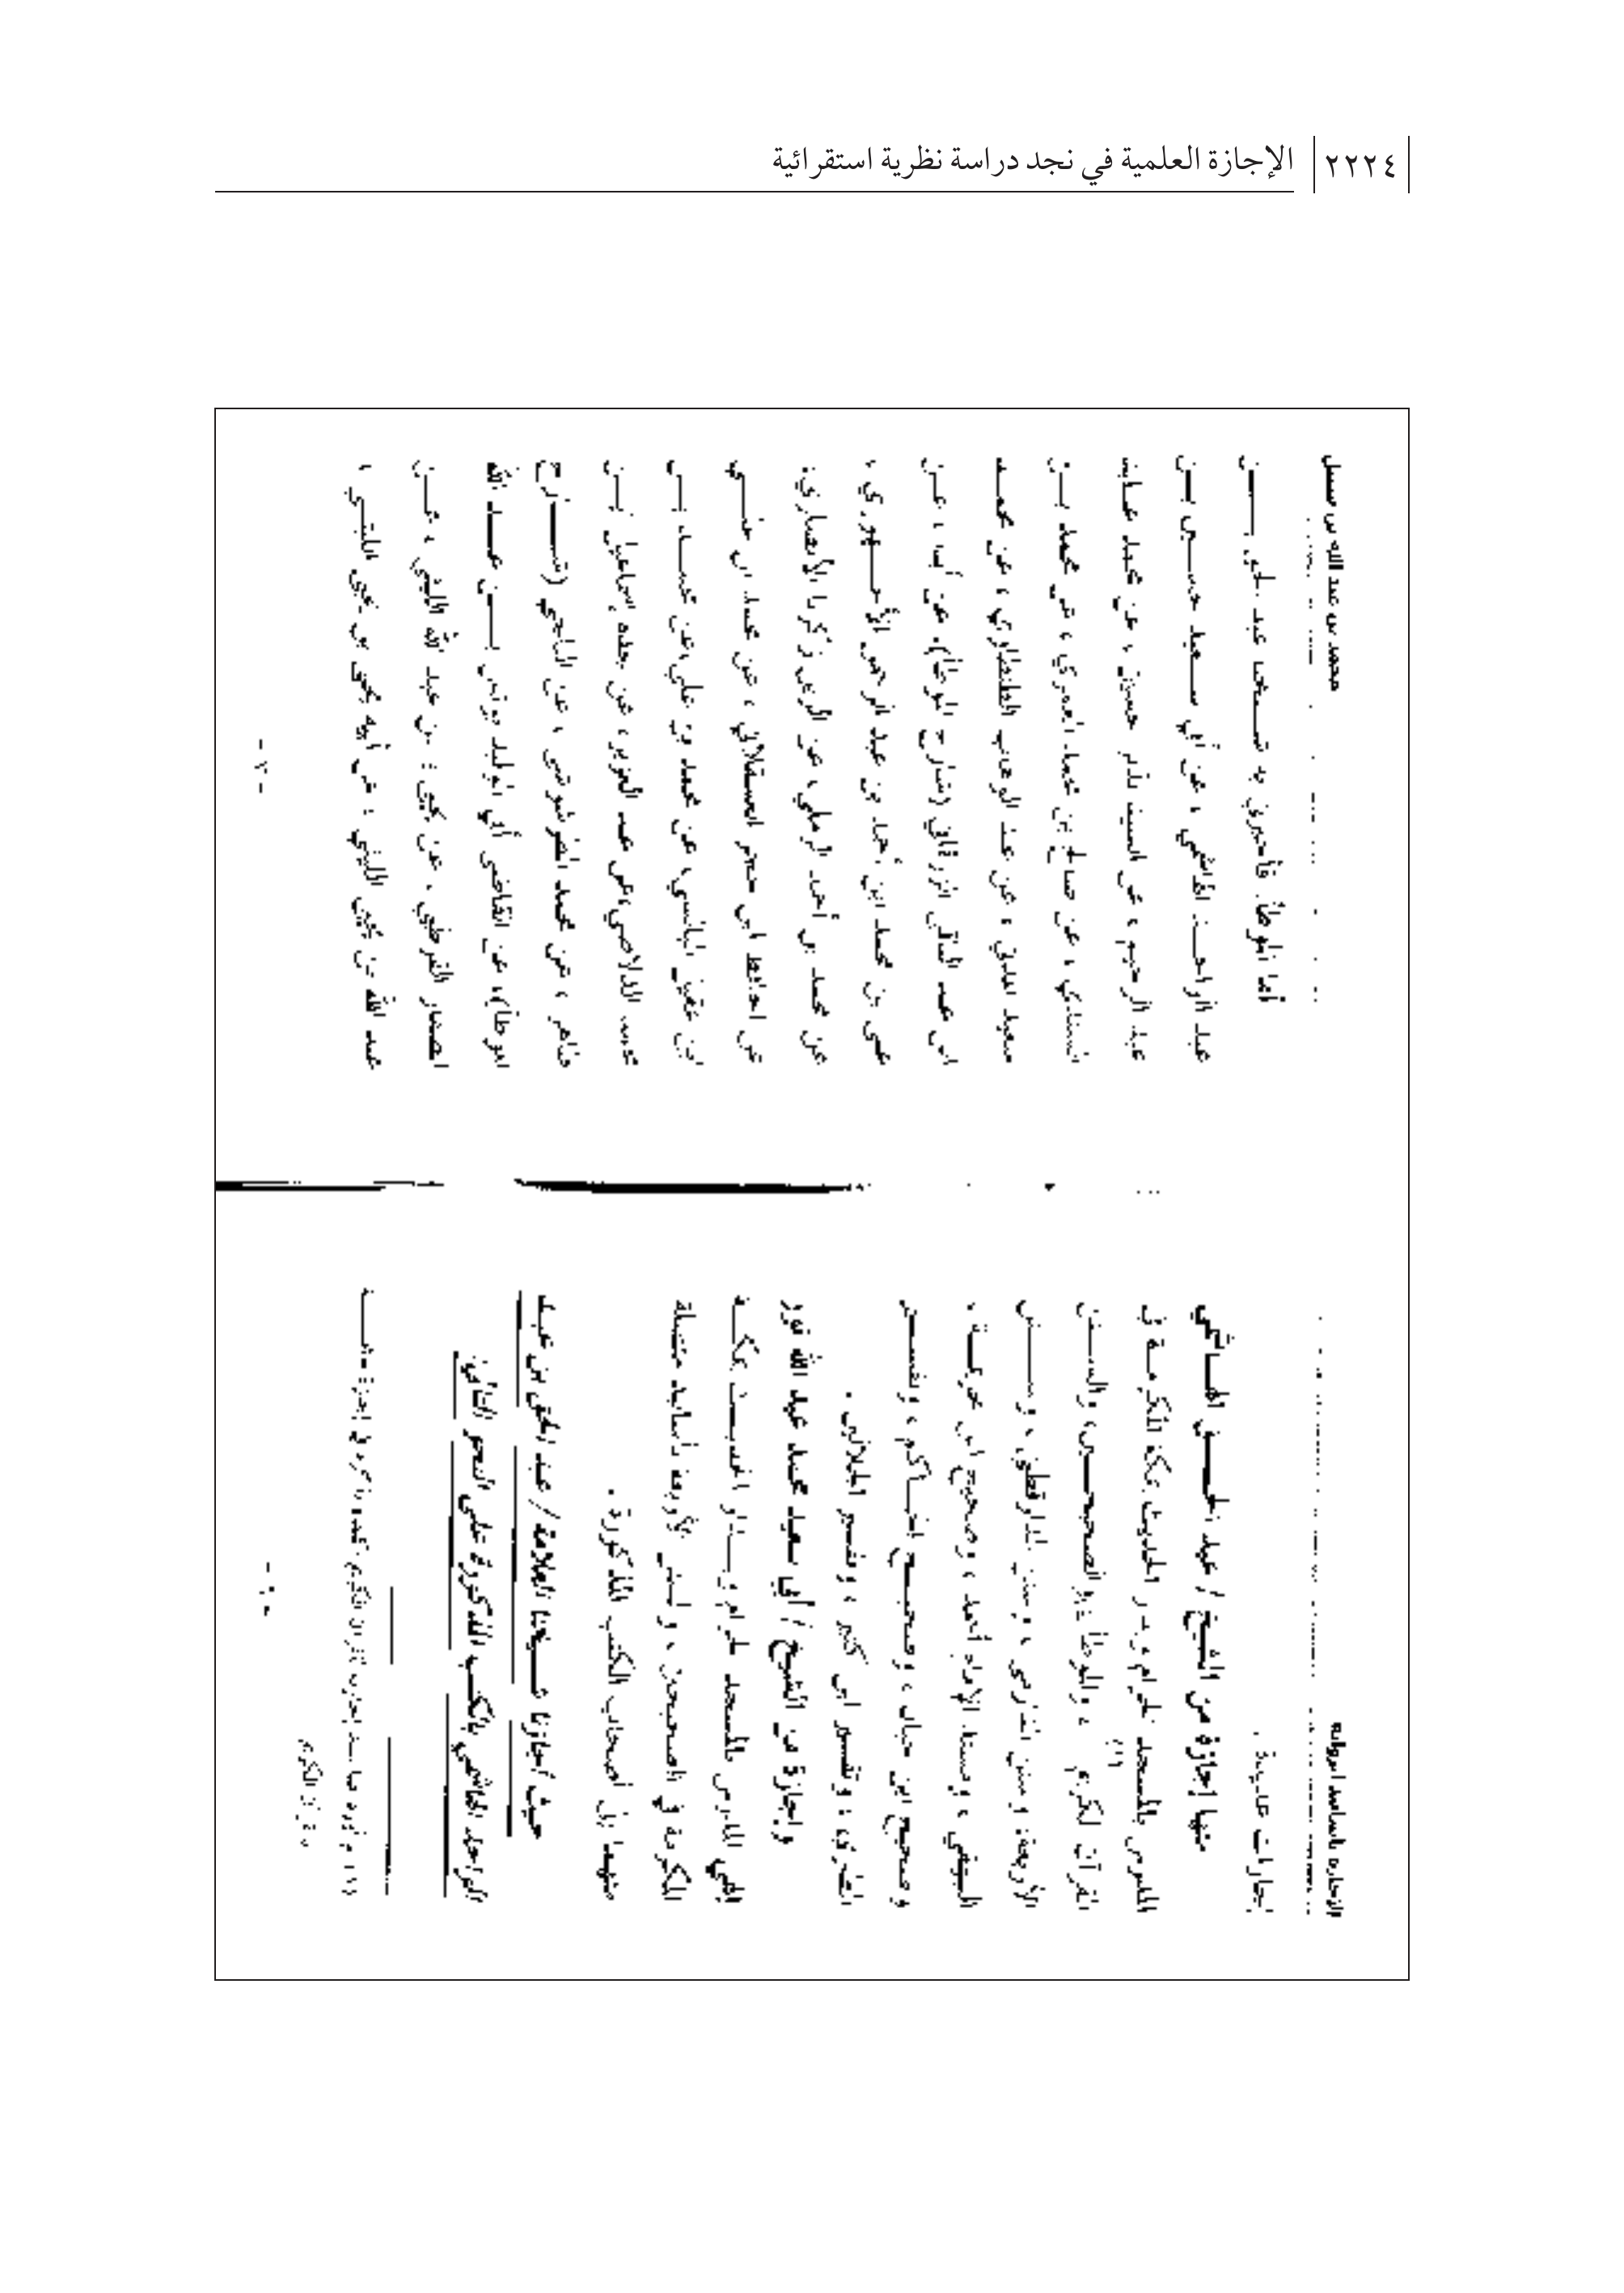 ٢٢٢٤
الإجازة العلمية في نجد دراسة نظرية استقرائية
الإجازة بأسانيد الرواية
إجازات عديدة .
منها إجازة من الشيخ / عبد الحق الهاشمي
المدرس بالمسجد الحرام وبدار الحديث بمكة المكرمة في
القرآن الكريم (١) ، والموطأ ، والصحيحين، والسنن
الأربعة، وسنن الدارمي ، وسنن الدارقطني ، وسنن
البيهقي ، ومسند الإمام أحمد ، وصحيح ابن خزيمة ،
وصحيح ابن حبان ، وصحيح الحاكم ، وتفسير
الطبري ، وتفسير ابن كثير ، وتفسير الجلالين .
وإجازة من الشيخ / أبي سعيد محمد عبد الله نور
إلهي المدرس بالمسجد الحرام الحديث بمكة
المكرمة في الصحيحين ، والسنن الأربعة بأسانيد متصلة
منهما إلى أصحاب الكتب المذكورة .
حيث أجازنا شيخنا العلامة / عبد الحق بن عبد
الواحد الهاشمي بالكتب المذكورة على النحو التالي:
- ٦ -
محمد بن عبد الله بن سبيل
أما الموطأ: فأخبرني به شيخنا عبد الحق بن
عبد الواحد الهاشمي ، عن أبي سعيد حسين بن
عبد الرحيم ، عن السيد نذير حسين ، عن محمد عابد
السندي ، عن صالح بن محمد العمري ، عن محمد بن
سعيد ، عن عبد الوهاب الطنطاوي ، عن محمد
ابن عبد الباقي الزرقاني (شارح الموطأ)، عن أبيه ، عن
علي بن محمد ابن أحمد بن عبد الرحمن الأجهوري ،
عن محمد بن أحمد الرملي ، عن الزين زكريا الأنصاري،
عن الحافظ ابن حجر العسقلاني ، عن محمد بن علي
ابن عقيل البالسي، عن محمد بن علي، عن محمد بن
محمد الدلاصي، عن عبد العزيز، عن جده إسماعيل بن
طاهر ، عن محمد الطرطوشي ، عن الباجي (شارح
الموطأ)، عن القاضي أبي الوليد يونس بن عبد الله
الصفار القرطبي ، عن يحيى بن عبد الله الليثي ، عن
عبيد الله بن يحيى الليثي ، عن أبيه يحيى بن يحيى الليثي ،
- ٧ -